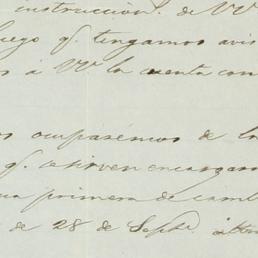 instruccion. de VV
luego q. tengamos avis
s á VV la cuenta con
os ocuparémos de la
q. se sirven encargar
ua primera de camb
de 28 de Septe.